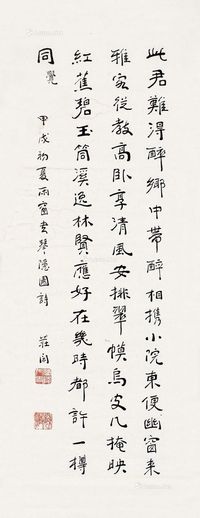 此君難得醉鄉中帶醉相攜小院東便幽窗來
雅客從教高臥享清風安排翠幙烏皮几掩映
紅蕉碧玉筒溪逸林賢應好在幾時都許一樽
同覺
甲戌初夏雨窗書琴隱園詩
莊閑